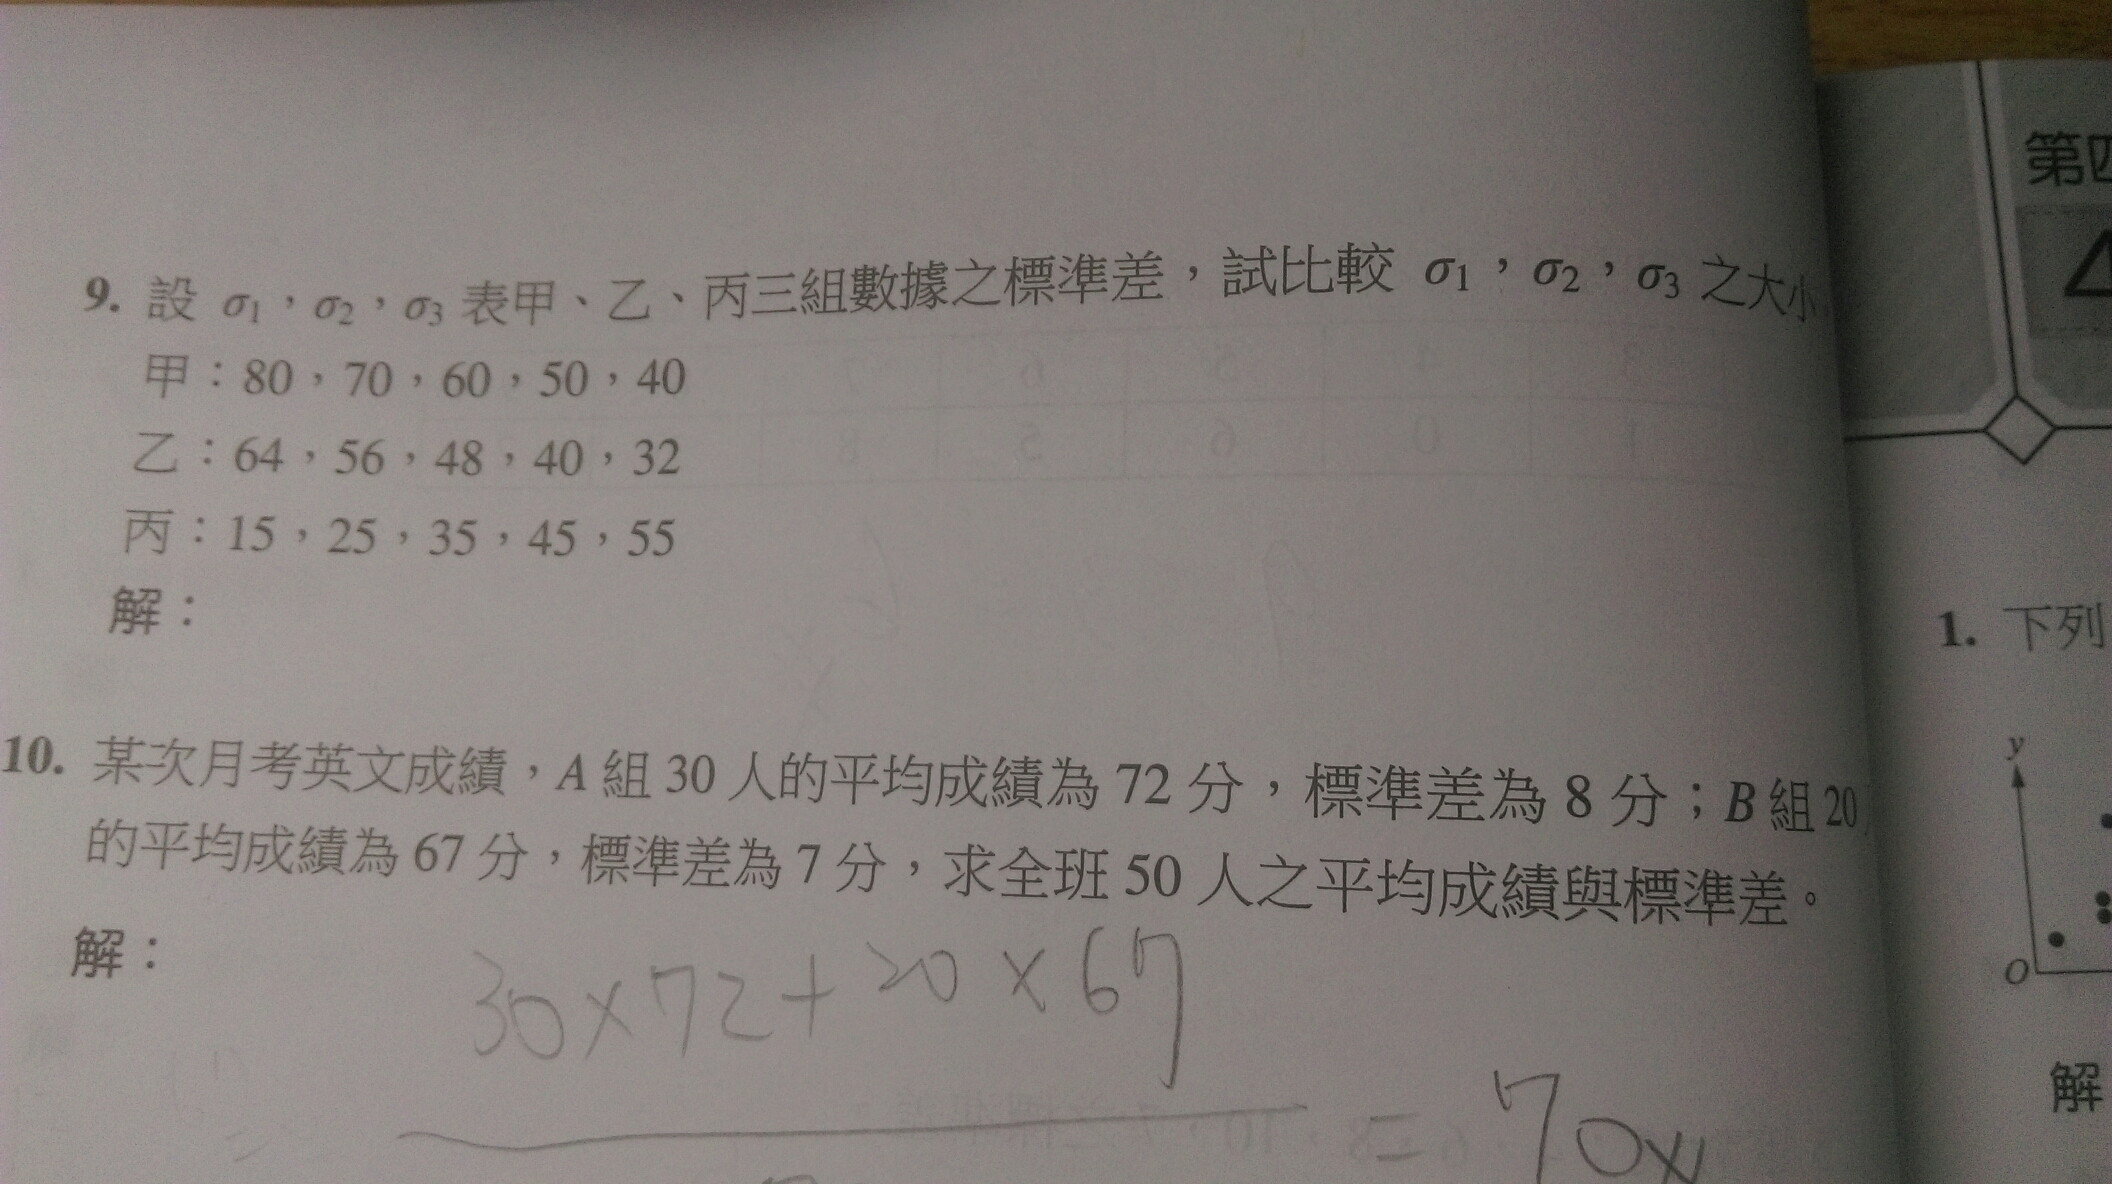 9. 設 σ1,σ2,σ3 表甲、乙、丙三組數據之標準差,試比較 σ1,σ2,σ3 之大小
甲:80,70,60,50,40
乙:64,56,48,40,32
丙:15,25,35,45,55
解:
10. 某次月考英文成績,A 組 30 人的平均成績為 72 分,標準差為 8 分;B 組 20
的平均成績為 67 分,標準差為 7 分,求全班 50 人之平均成績與標準差。
解:
30×72+20×67
= 70
第四
1. 下列
y
O
解